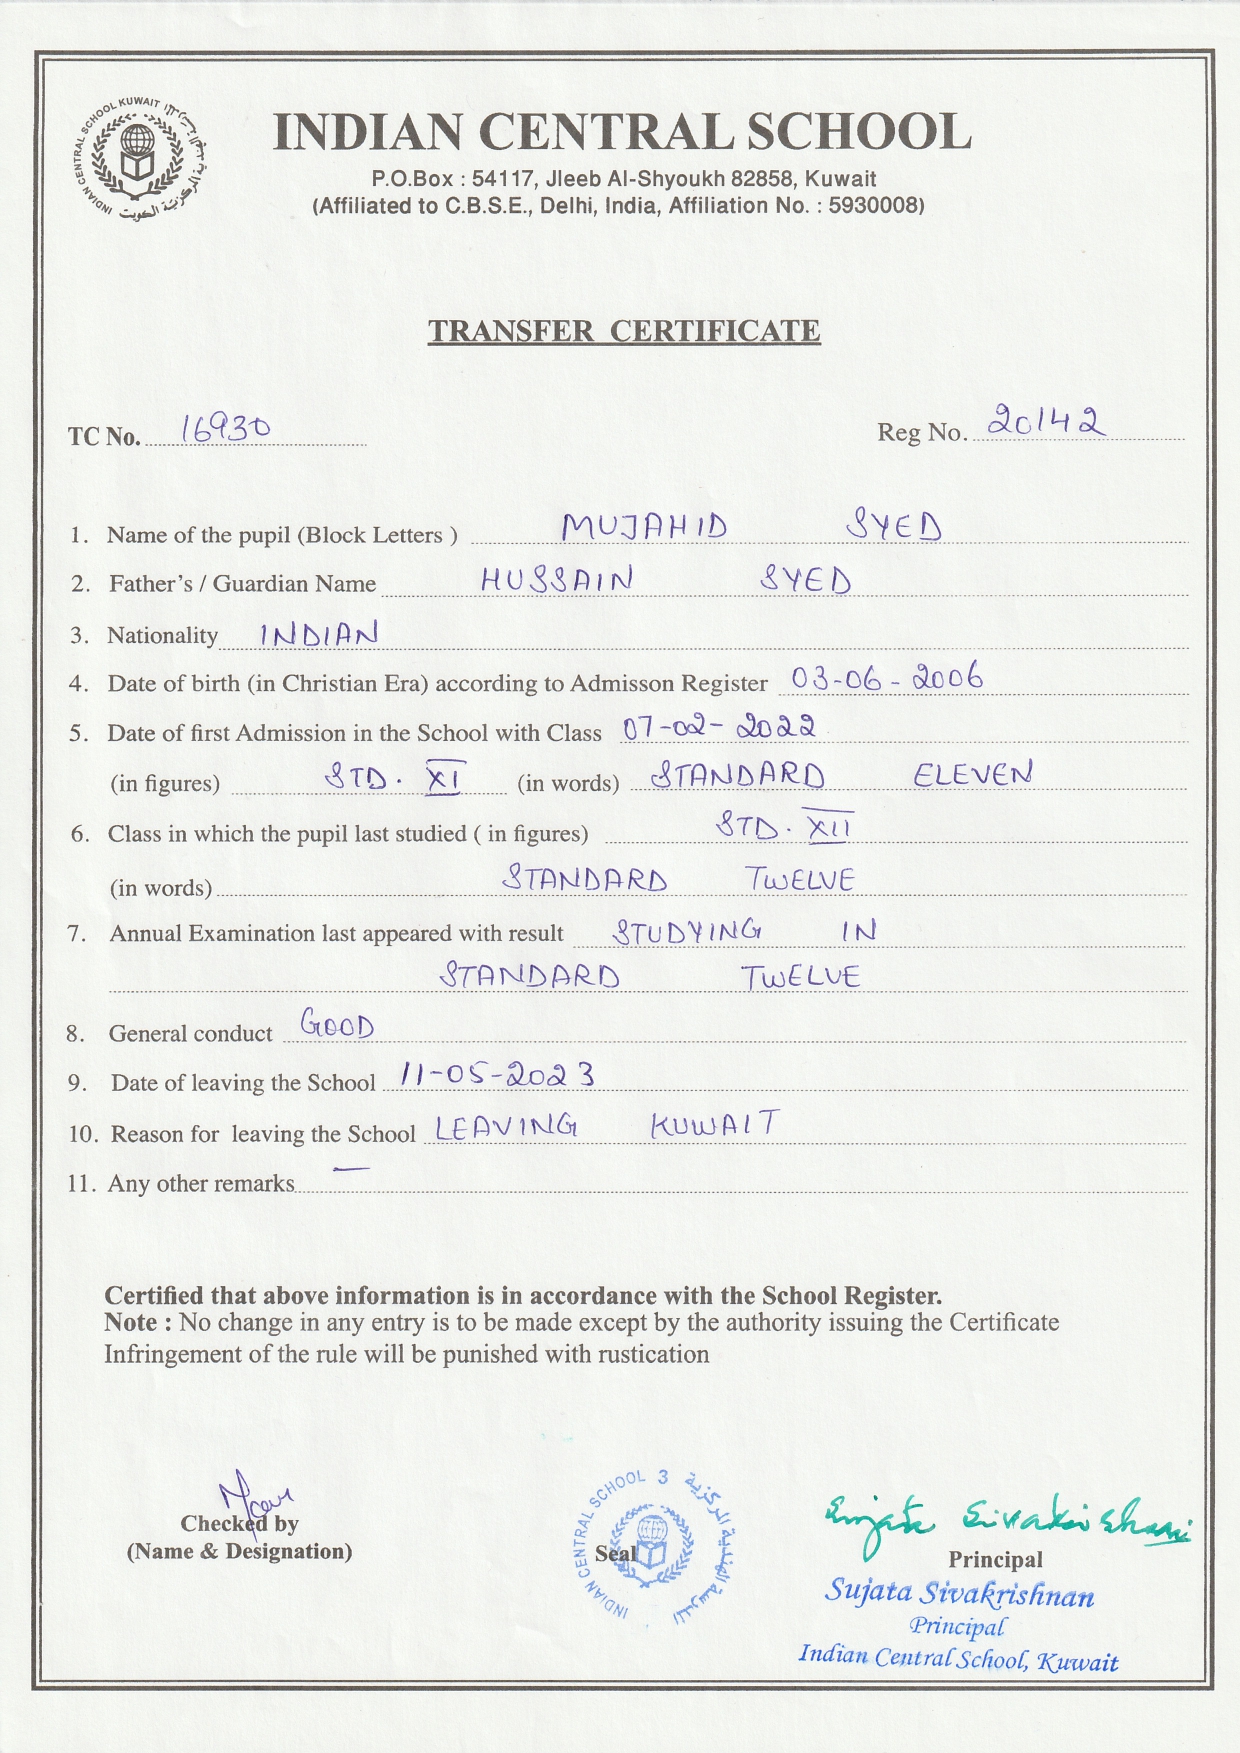 INDIAN CENTRAL SCHOOL KUWAIT
INDIAN CENTRAL SCHOOL
P.O.Box : 54117, Jleeb Al-Shyoukh 82858, Kuwait
(Affiliated to C.B.S.E., Delhi, India, Affiliation No. : 5930008)
TRANSFER CERTIFICATE
TC No. 16930 Reg No. 20142
1. Name of the pupil (Block Letters ) MUJAHID SYED
2. Father's / Guardian Name HUSSAIN SYED
3. Nationality INDIAN
4. Date of birth (in Christian Era) according to Admisson Register 03-06-2006
5. Date of first Admission in the School with Class 07-02-2022
(in figures) STD. XI (in words) STANDARD ELEVEN
6. Class in which the pupil last studied ( in figures) STD. XII
(in words) STANDARD TWELVE
7. Annual Examination last appeared with result STUDYING IN
STANDARD TWELVE
8. General conduct GOOD
9. Date of leaving the School 11-05-2023
10. Reason for leaving the School LEAVING KUWAIT
11. Any other remarks —
Certified that above information is in accordance with the School Register.
Note : No change in any entry is to be made except by the authority issuing the Certificate
Infringement of the rule will be punished with rustication
Checked by
(Name & Designation)
INDIAN CENTRAL SCHOOL 3
Seal
Sujata Sivakrishnan
Principal
Sujata Sivakrishnan
Principal
Indian Central School, Kuwait